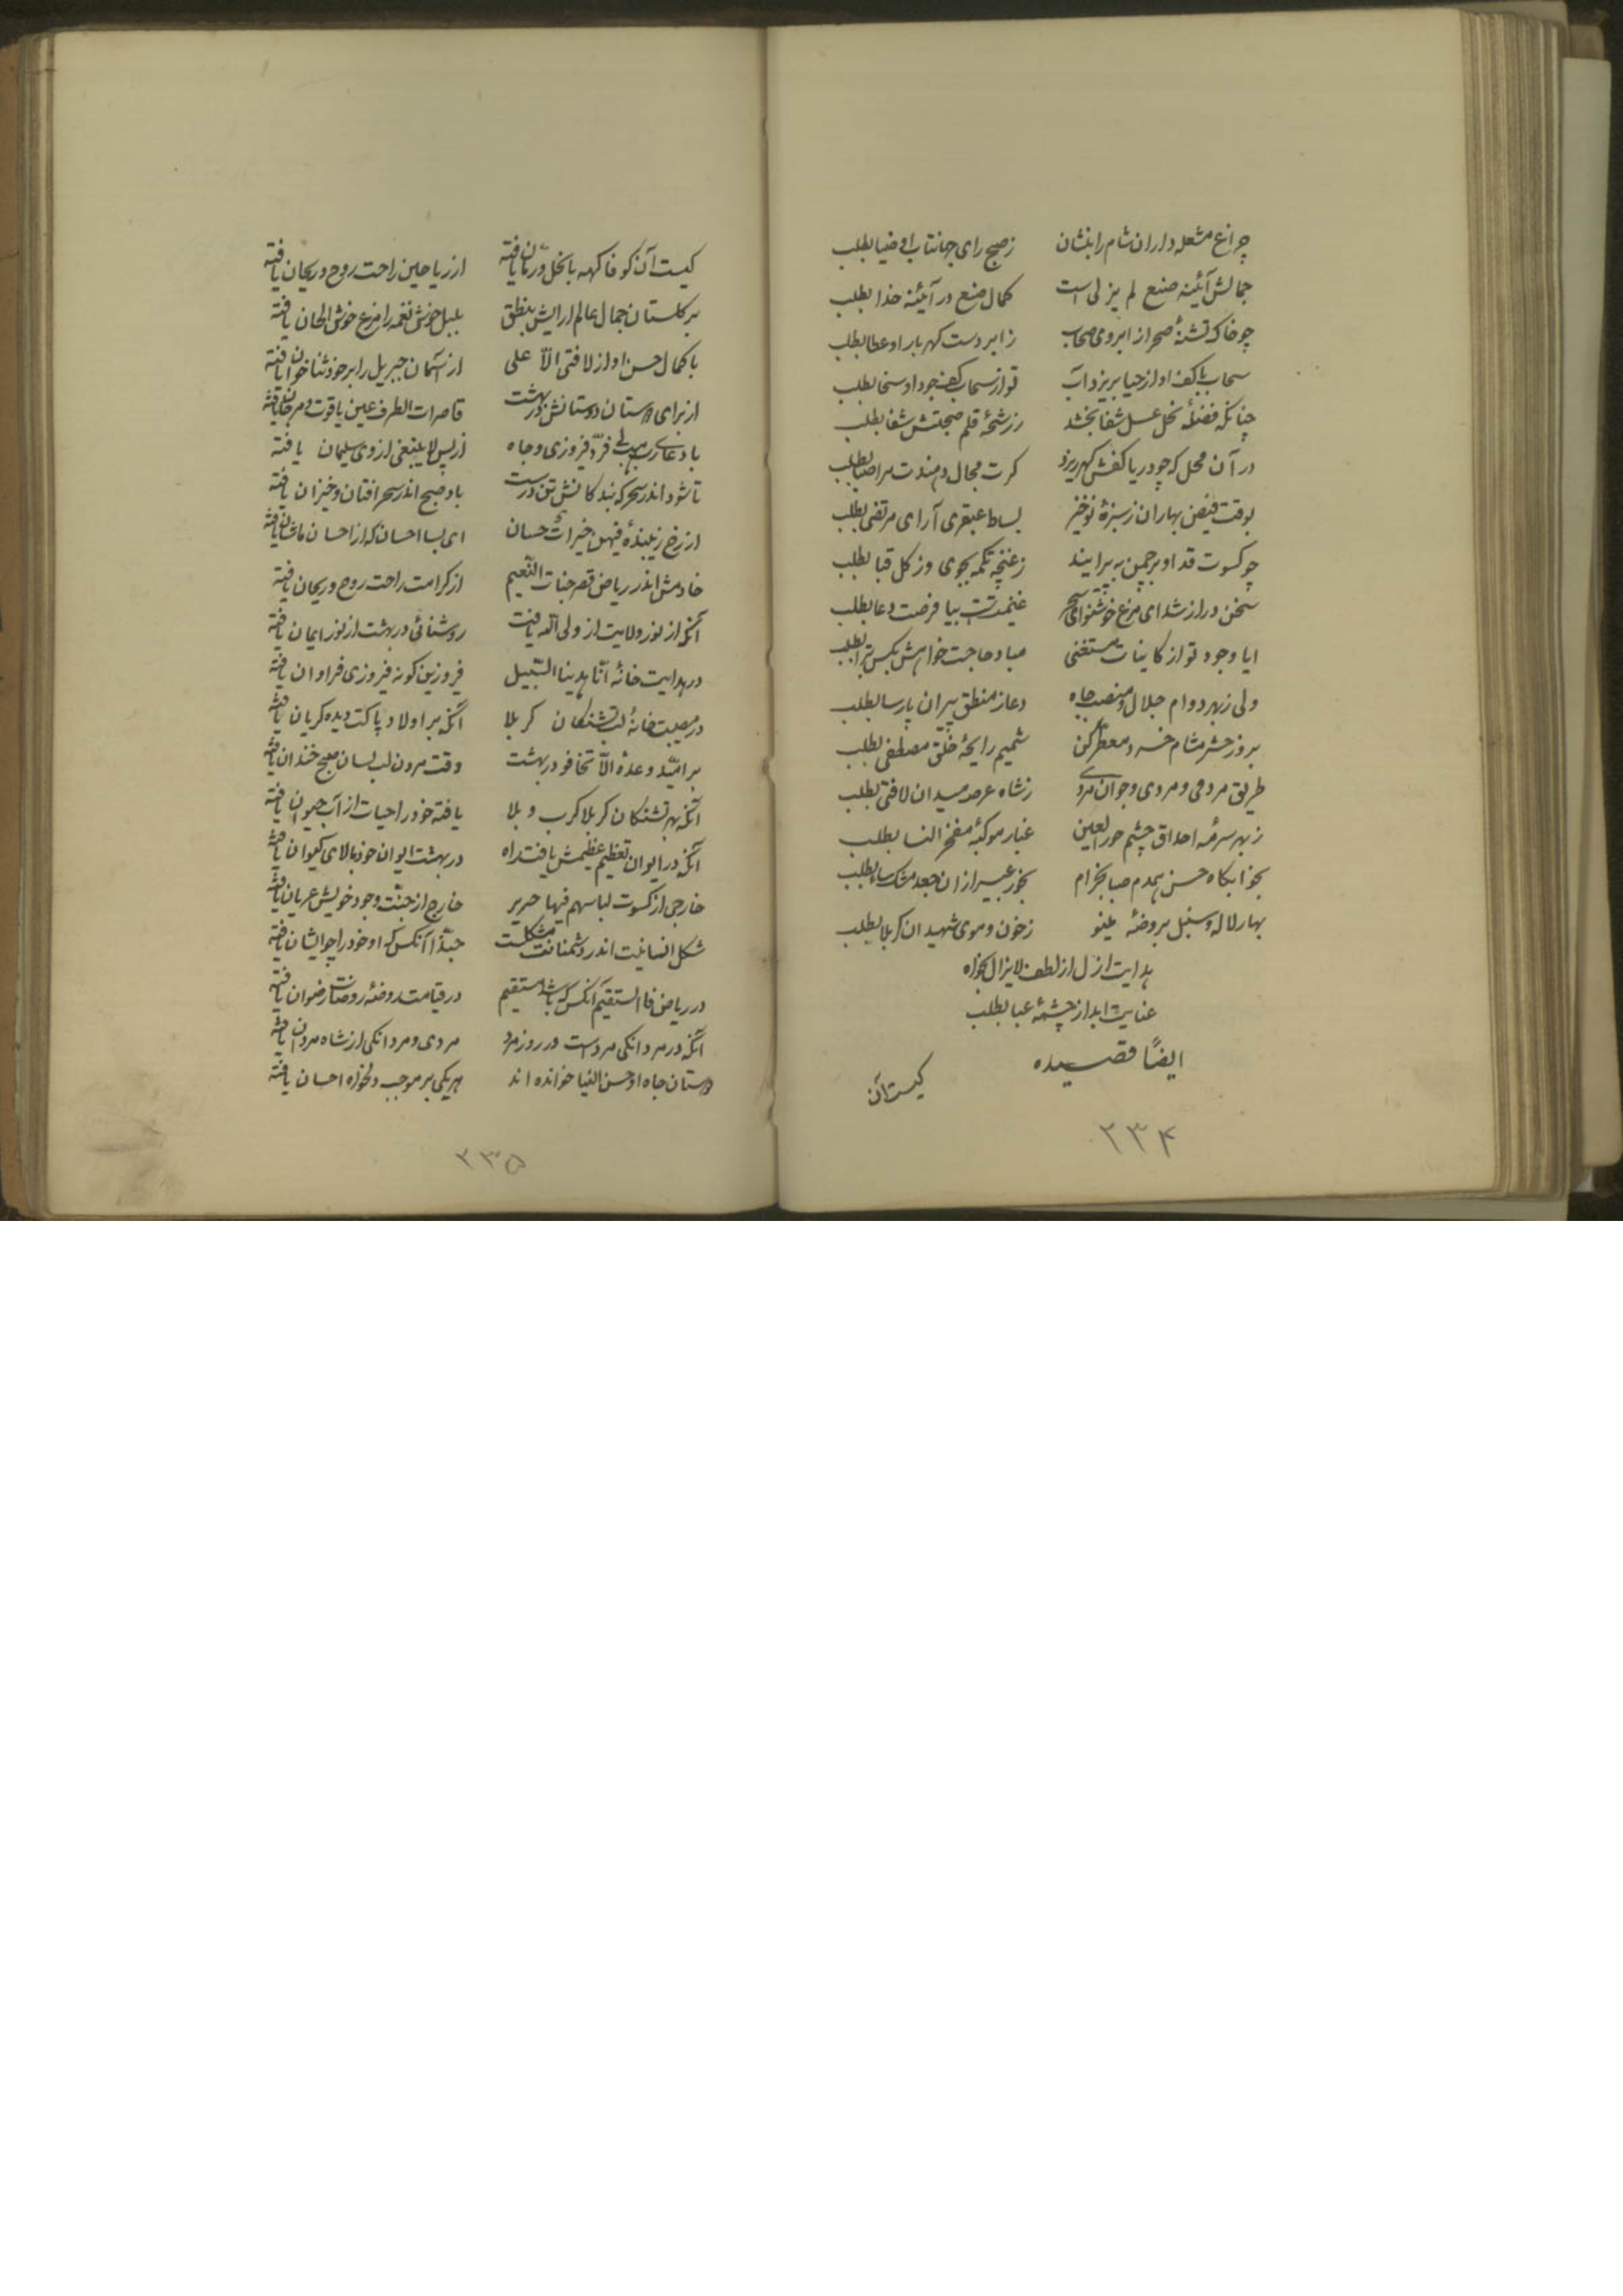 چراغ مشعله داران شام را بنشان زصبح رای جهانتاب او ضیا بطلب
جمالش آئینه صنع لم یزلی است کمال صنع در آئینه خدا بطلب
چو خاک تشنهٔ صحرا ز ابروی سحاب ز ابر دست کهربار او عطا بطلب
سحاب با کف او از حیا بریزد آب تو از سحاب کف جود او سخا بطلب
چنانکه فضلهٔ نحل عسل شفا بخشد ز رشحهٔ قلم صحتش شفا بطلب
در آن محل که چو دریا کفش کهر ریزد کرت مجال دهندت مراضیا بطلب
بوقت فیض بهاران ز سبزهٔ نوخیز بساط عبقری آرای مرتضی بطلب
چو کسوت قد او بر چمن به پیرایند زغنچه تکمه بجوی وز کل قبا بطلب
سخن دراز شد ای مرغ خوشنوای سحر غنیمتست بیا فرصت دعا بطلب
ایا وجود تو از کاینات مستغنی مباد حاجت خواهش بکس ترا بطلب
ولی زبهر دوام جلال و منصب جاه دعا ز منطق پیران پارسا بطلب
بروز حشر مشام خرد معطر کن شمیم رایحهٔ خلق مصطفی بطلب
طریق مردمی و مردی و جوان مردی ز شاه عرصه میدان لافتی بطلب
زبهر سرمه احداق چشم حور العین غبار موکبهٔ مفخر النسا بطلب
بخوابکاه حسن همدم صبا بخرام بخور عبیر ازان جعد مشک سا بطلب
بهار لاله و سنبل بروضهٔ غینو زخون و موی شهیدان کربلا بطلب
هدایت ازل از لطف لایزال بخواه
عنایت ابد از چشمهٔ عبا بطلب
ایضًا قصیده
کیست آن
۲۳۴
کیست آن کو فاکهه با نخل و رمان یافته از ریاحین راحت روح و ریحان یافته
بر کلستان جمال عالم ارایش بنطق بلبل خوش نغمه را مرغ خوش الحان یافته
با کمال حسن او از لافتی الّا علی از آسمان جبریل را بر خود ثنا خوان یافته
از برای دوستان دوستانش در بهشت قاصرات الطرف عین یاقوت و مرجان یافته
با دعای رب هب لی فرّ فیروزی و جاه از پس لا ینبغی از وی سلیمان یافته
تا شود اندر سحر که بندکانش تن درست باد صبح اندر سحر افتان و خیزان یافته
از رخ زیبندهٔ فیهن خیرات حسان ای بسا احسان که از احسان ماشان یافته
خادمش اندر ریاض قصر جنات النّعیم از کرامت راحت روح و ریحان یافته
آنکه از نور ولایت از ولی الله یافت روشنائی در بهشت از نور ایمان یافته
در هدایت خانهٔ انّا هدینا السّبیل فیروزین کونه فیروزی فراوان یافته
در مصیبت خانهٔ لب تشنکان کربلا انکه بر اولاد پاکت دیده کریان یافته
بر امیّد وعدهٔ الّا تخافو در بهشت وقت مردن لب بسان صبح خندان یافته
آنکه بهر تشنکان کربلا کرب و بلا یافته خود را حیات از آب حیوان یافته
آنکه در ایوان تعظیم عظیمش یافت راه در بهشت ایوان خود بالای کیوان یافته
خارجی از کسوت لباسهم فیها حریر خارج از جنّت وجود خویش عریان یافته
شکل انسانیت اندر دشمنانت مشکلست حبّذا آنکس که او خود را چو ایشان یافته
در ریاض فاالستقیم آنکس که باشد مستقیم در قیامت روضهٔ روضات رضوان یافته
آنکه در مردانکی مردست در روز مرد مردی و مردانکی از شاه مردان یافته
دستان جاه او حسن النیا خوانده اند هریکی بر موجب دلخواه احسان یافته
۲۳۵